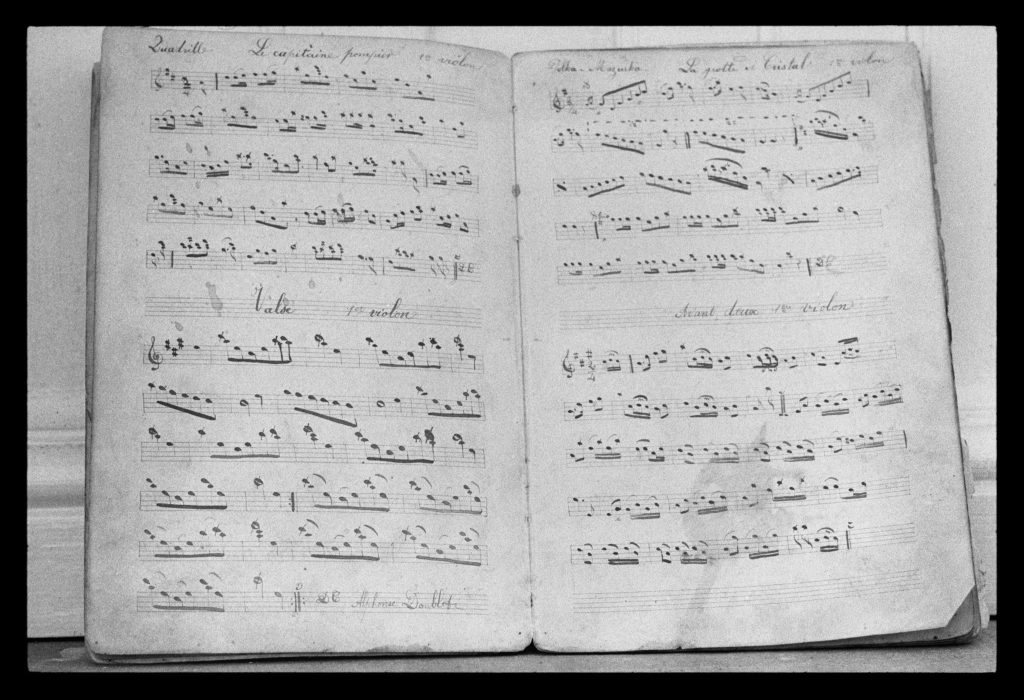 Quadrille Le capitaine pompier 1er violon
DC
Valse 1er violon
DC Alphonse Doublet
Polka-Mazurka La grotte de Cristal 1er violon
DC
Avant deux 1er violon